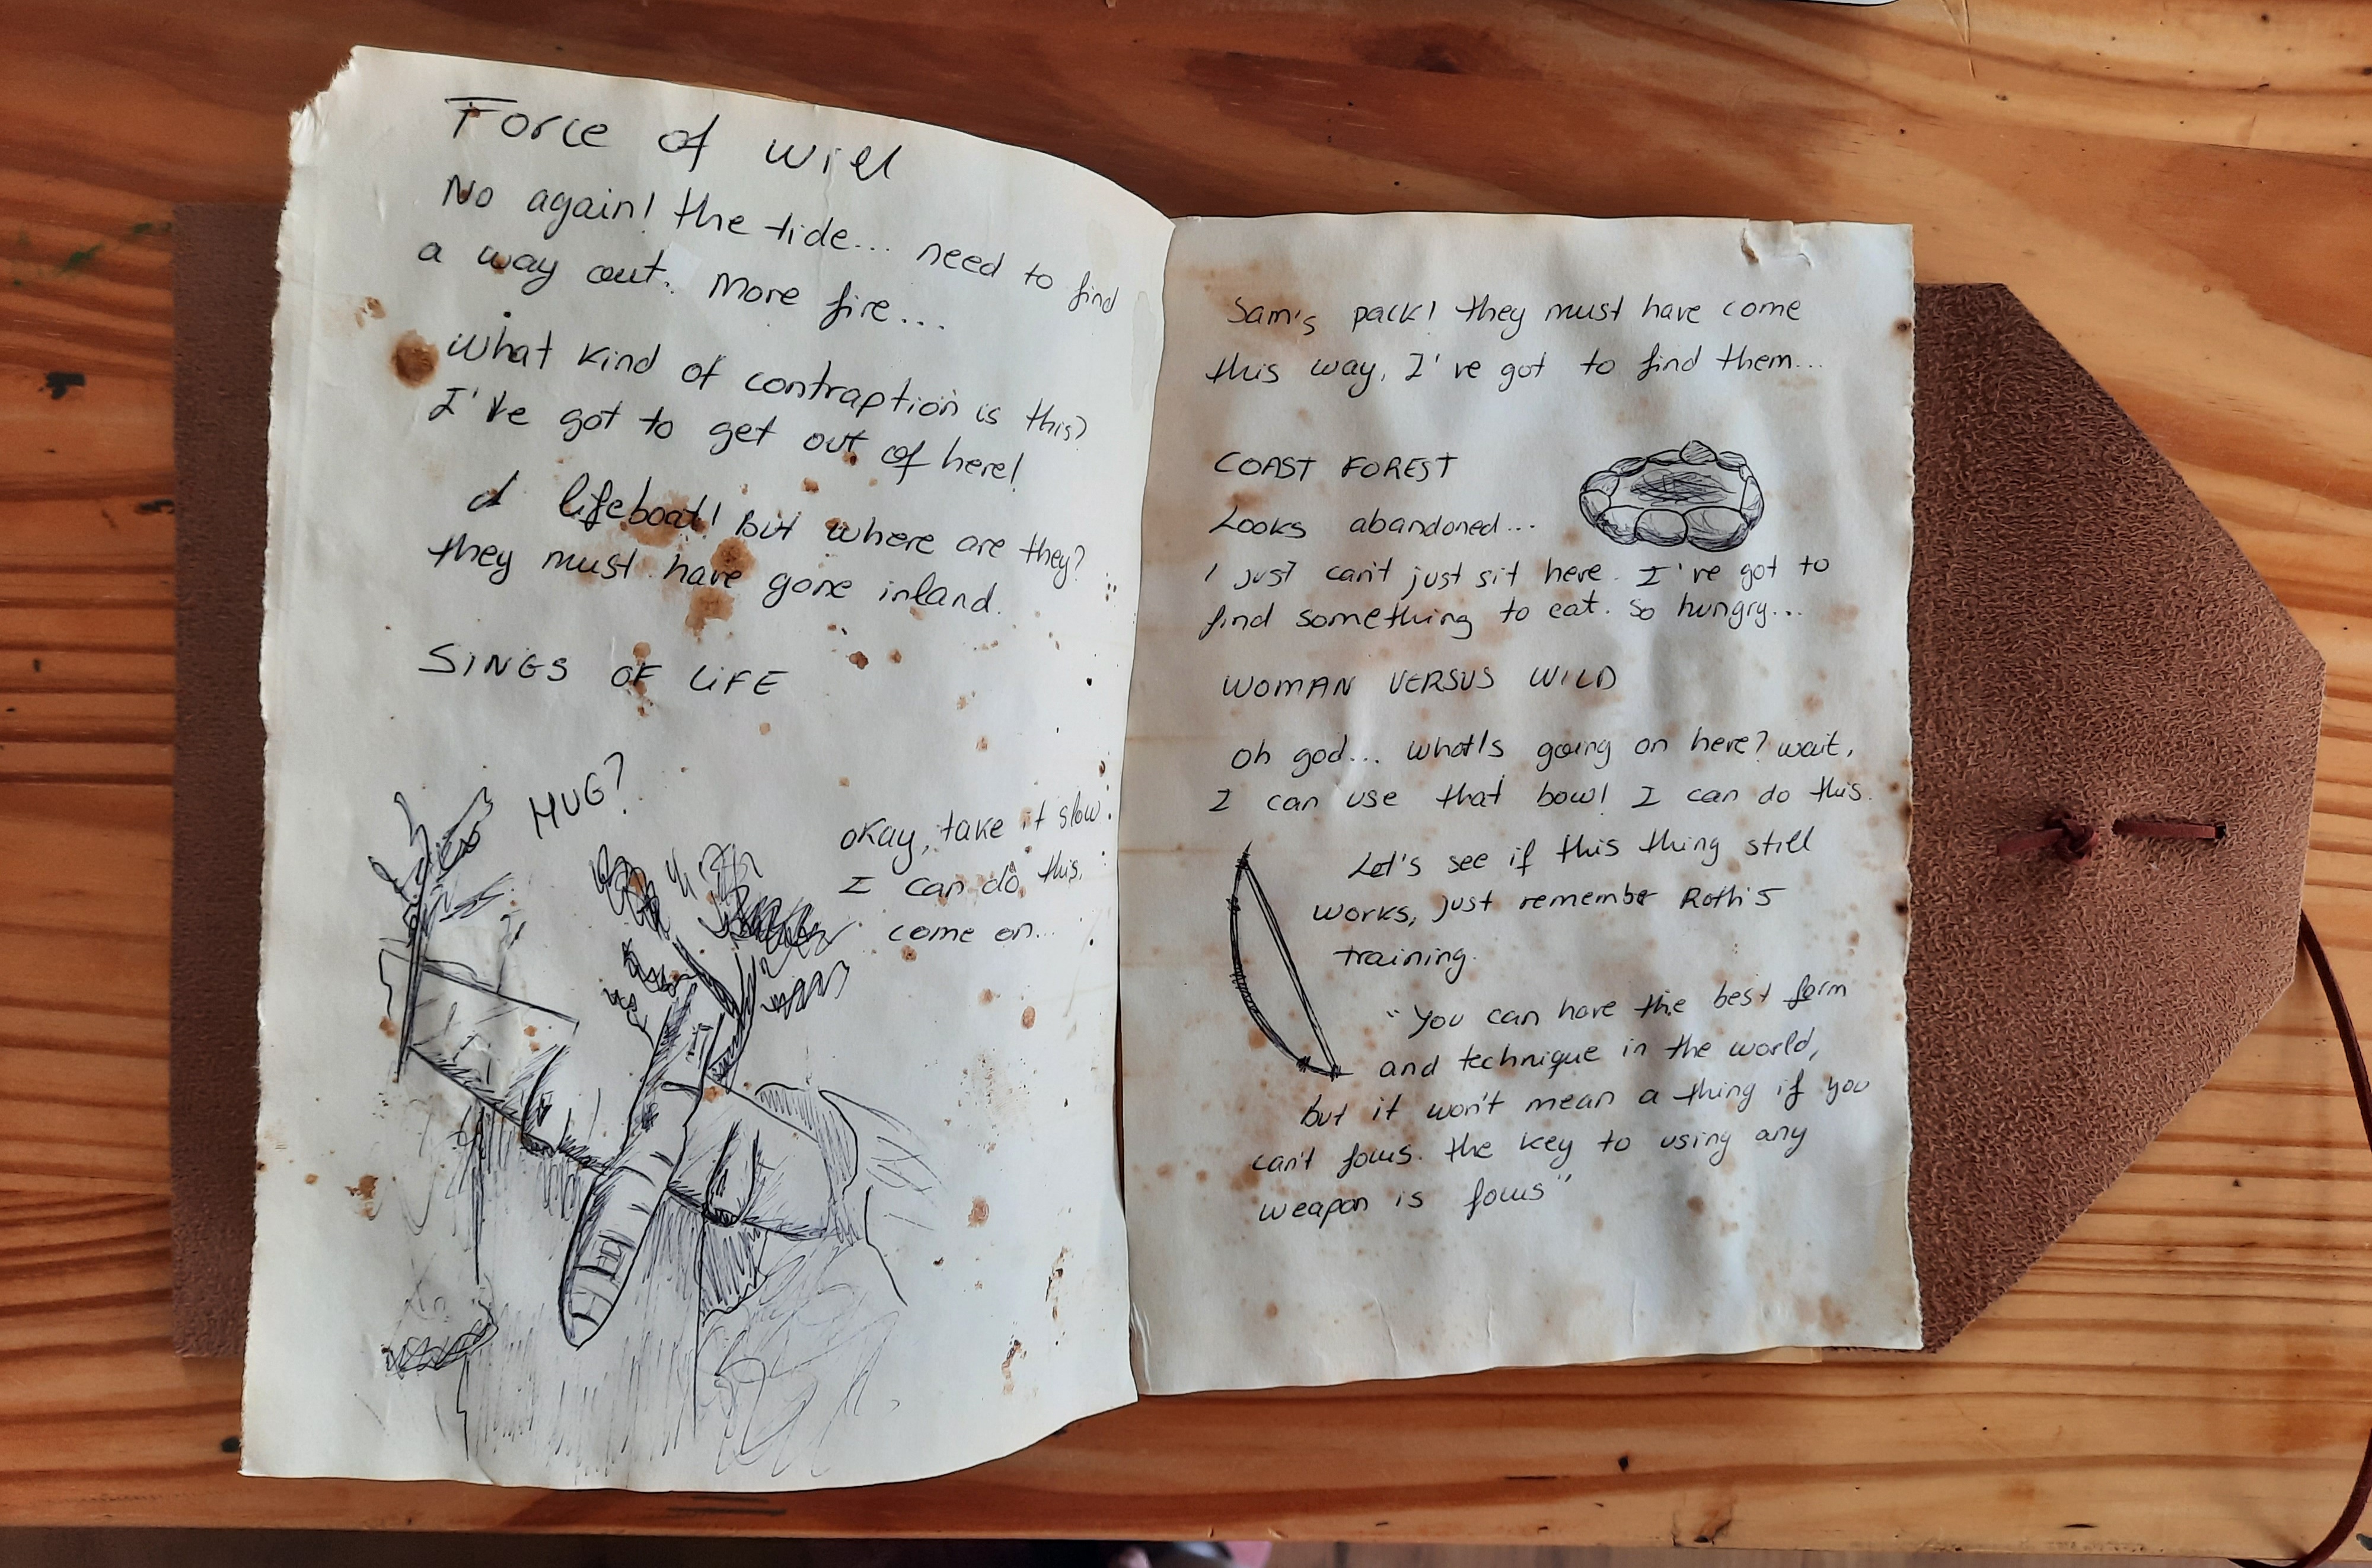 Force of will
No again! the tide... need to find
a way out. More fire...
What kind of contraption is this?
I've got to get out of here!
A lifeboat! But where are they?
they must have gone inland.
SINGS OF LIFE
HUG?
okay, take it slow.
I can do this.
come on...
Sam's pack! they must have come
this way, I've got to find them...
COAST FOREST
Looks abandoned...
I just can't just sit here. I've got to
find something to eat. So hungry...
WOMAN VERSUS WILD
oh god... what's going on here? wait,
I can use that bow! I can do this.
Let's see if this thing still
works, just remember Roth's
training.
"You can have the best form
and technique in the world,
but it won't mean a thing if you
can't focus. the key to using any
weapon is focus"